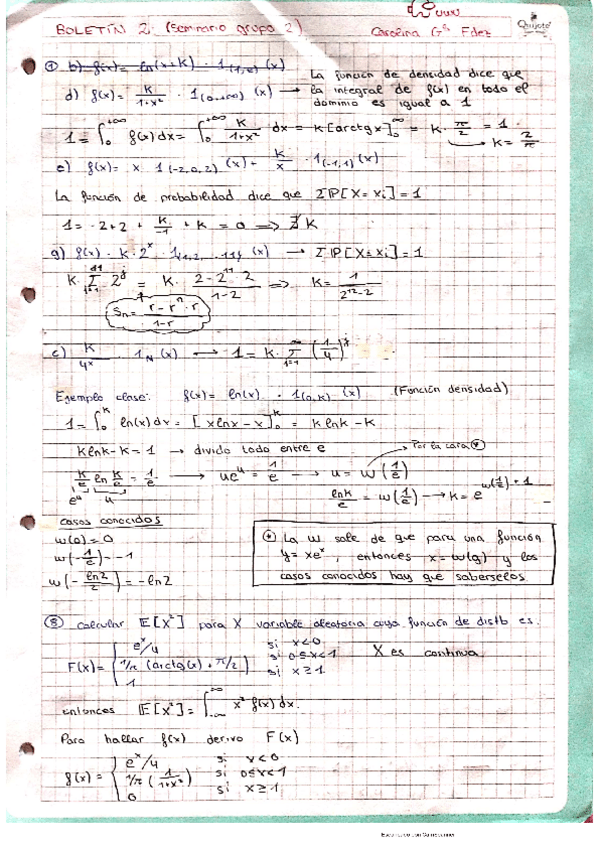 BOLETÍN 2: (Seminario grupo 2) Carolina Gª Fdez
① b) f(x) = ln(x+k) · 1(1,e) (x)
d) f(x) = k/(1+x²) · 1(0,+∞) (x) → La función de densidad dice que
la integral de f(x) en todo el
dominio es igual a 1
1 = ∫₀^{+∞} f(x) dx = ∫₀^{+∞} k/(1+x²) dx = k [arctg x]₀^∞ = k · π/2 = 1
→ k = 2/π
e) f(x) = x · 1{-2,0,2} (x) + k/x · 1{-1,1} (x)
La función de probabilidad dice que Σ P[X = xi] = 1
1 = -2+2 + k/-1 + k = 0 ⟹ ∄ k
g) f(x) = k · 2ˣ · 1{1,2,...,11} (x) → Σ P[X = xi] = 1
k · Σ 2ʲ = k · (2 - 2¹¹ · 2)/(1-2) ⟹ k = 1/(2¹²-2)
Sn = (r - rⁿ · r)/(1-r)
c) k/4ˣ · 1ℕ (x) → 1 = k · Σ (1/4)
Ejemplo clase: f(x) = ln(x) · 1(0,k) (x) (Función densidad)
1 = ∫₀ᵏ ln(x) dx = [x lnx - x]₀ᵏ = k lnk - k
k lnk - k = 1 → divido todo entre e → Por la cara
k/e ln k/e = 1/e → ueᵘ = 1/e → u = W(1/e)
eᵘ u
lnk/e = W(1/e) → k = e^{W(1/e)+1}
casos conocidos
W(0) = 0
W(-1/e) = -1
W(-ln2/2) = -ln2
La W sale de que para una función
y = xeˣ, entonces x = W(y) y los
casos conocidos hay que saberselos
⑧ calcular E[X²] para X variable aleatoria cuya función de distb es:
F(x) = { eˣ/4 si x<0
1/π (arctg(x) + π/2) si 0≤x<1 X es continua
1 si x≥1
entonces E[X²] = ∫_{-∞}^{∞} x² f(x) dx.
Para hallar f(x) derivo F(x)
f(x) = { eˣ/4 si x<0
1/π (1/(1+x²)) si 0≤x<1
0 si x≥1
Escaneado con CamScanner